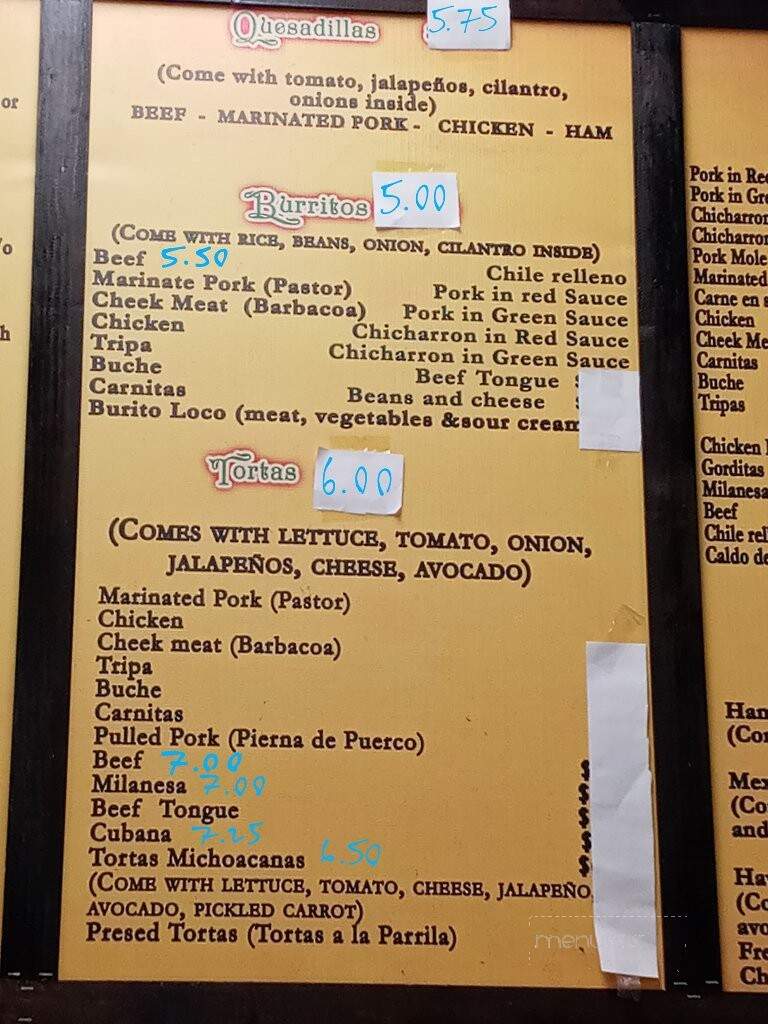 Quesadillas 5.75
(Come with tomato, jalapeños, cilantro,
onions inside)
BEEF - MARINATED PORK - CHICKEN - HAM
Burritos 5.00
(COME WITH RICE, BEANS, ONION, CILANTRO INSIDE)
Beef 5.50
Marinate Pork (Pastor)
Cheek Meat (Barbacoa)
Chicken
Tripa
Buche
Carnitas
Burito Loco (meat, vegetables &sour cream
Chile relleno
Pork in red Sauce
Pork in Green Sauce
Chicharron in Red Sauce
Chicharron in Green Sauce
Beef Tongue
Beans and cheese
Tortas 6.00
(COMES WITH LETTUCE, TOMATO, ONION,
JALAPEÑOS, CHEESE, AVOCADO)
Marinated Pork (Pastor)
Chicken
Cheek meat (Barbacoa)
Tripa
Buche
Carnitas
Pulled Pork (Pierna de Puerco)
Beef 7.00
Milanesa 7.00
Beef Tongue
Cubana 7.25
Tortas Michoacanas 6.50
(COME WITH LETTUCE, TOMATO, CHEESE, JALAPEÑO,
AVOCADO, PICKLED CARROT)
Presed Tortas (Tortas a la Parrila)
$
$
$
$
$
or
Pork in Red
Pork in
Chicharron
Chicharron
Pork Mole
Marinated
Carne en
Chicken
Cheek
Carnitas
Buche
Tripas
Chicken
Gorditas
Milanesa
Beef
Chile
Caldo
and